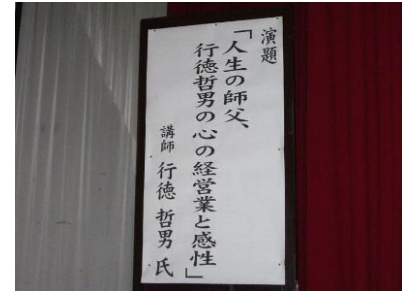 演題
「人生の師父、
行徳哲男の心の経営業と感性」
講師 行徳 哲男 氏